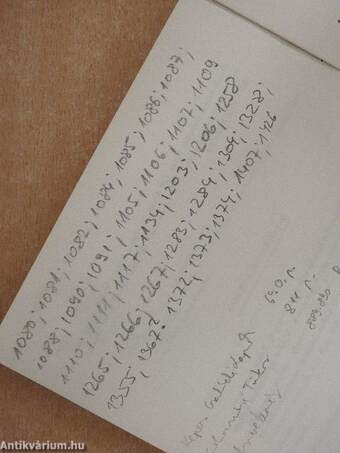 1080; 1081; 1082; 1084; 1085; 1086; 1087;
1088; 1090; 1091; 1105; 1106; 1107; 1109
1110; 1111; 1117; 1134; 1203; 1206; 1258
1265; 1266; 1267; 1283; 1284; 1304; 1328;
1355; 1367; 1372; 1373; 1374; 1407; 1426
640. n.
811 n.
Antikvárium.hu